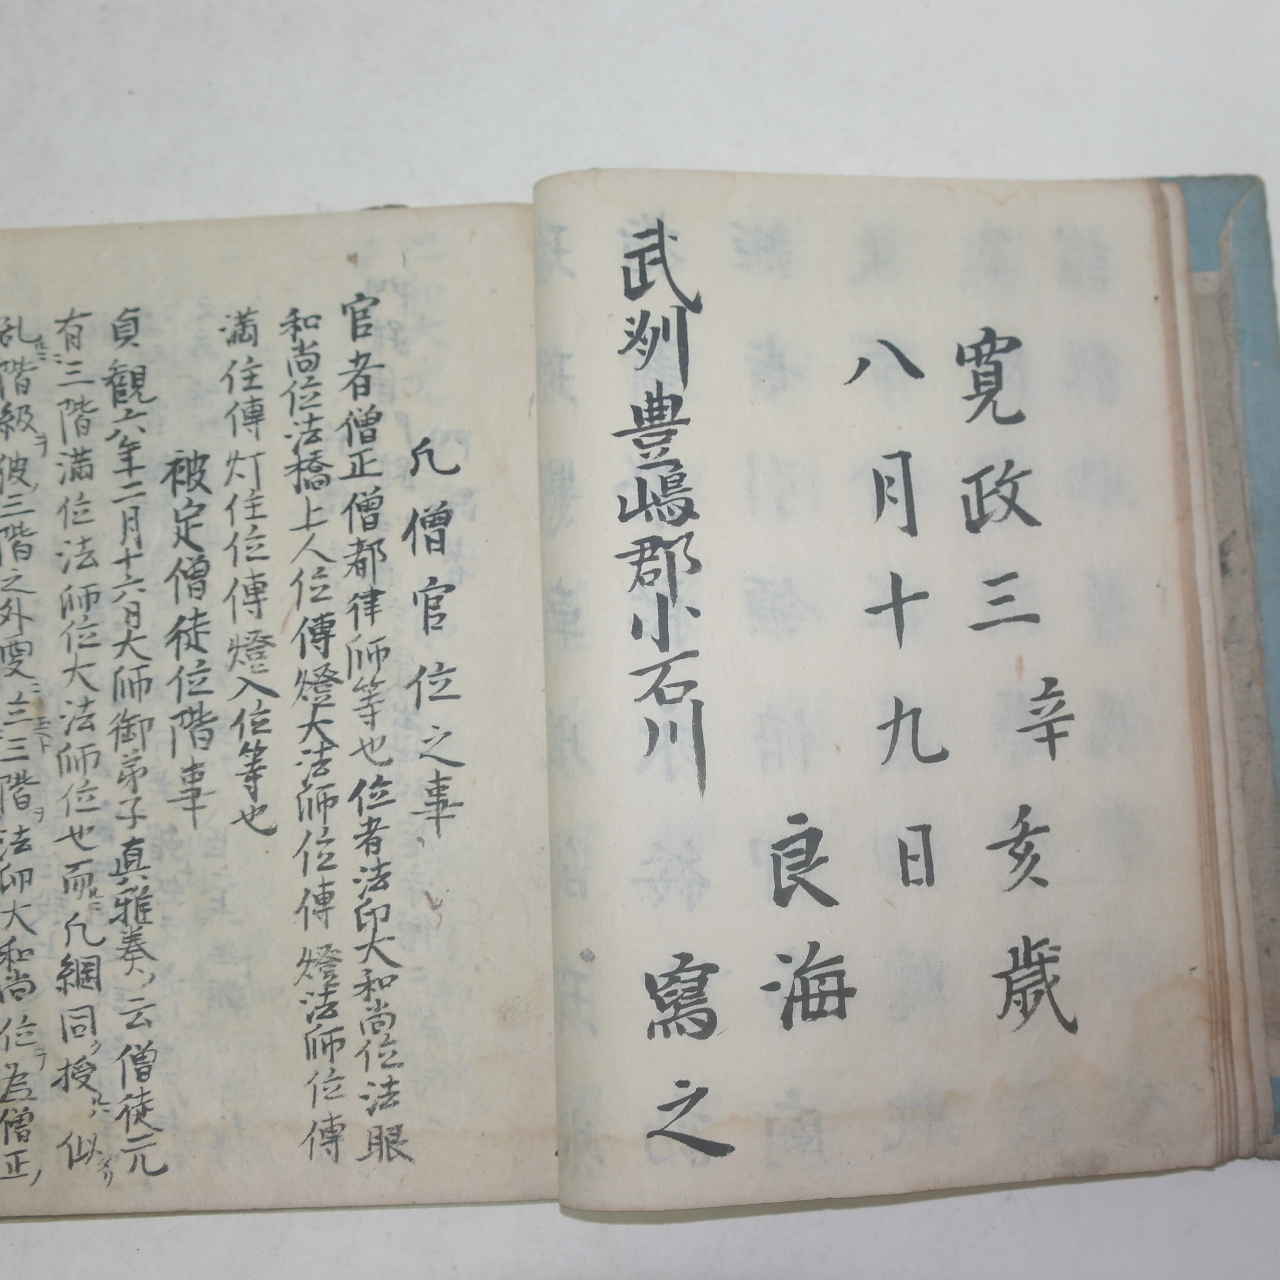 寛政三辛亥歳
八月十九日
良海
武刕豊嶋郡小石川寫之
凢僧官位之事
官者僧正僧都律師等也位者法印大和尚位法眼
和尚位法橋上人位傳燈大法師位傳燈法師位傳
満住傳灯住位傳燈入位等也
被定僧徒位階事
貞観六年二月十六日大師御弟子真雅奏云僧徒元
有三階満位法師位大法師位也而凢綱同授似
乱階級彼三階之外更立三階法印大和尚位為僧正